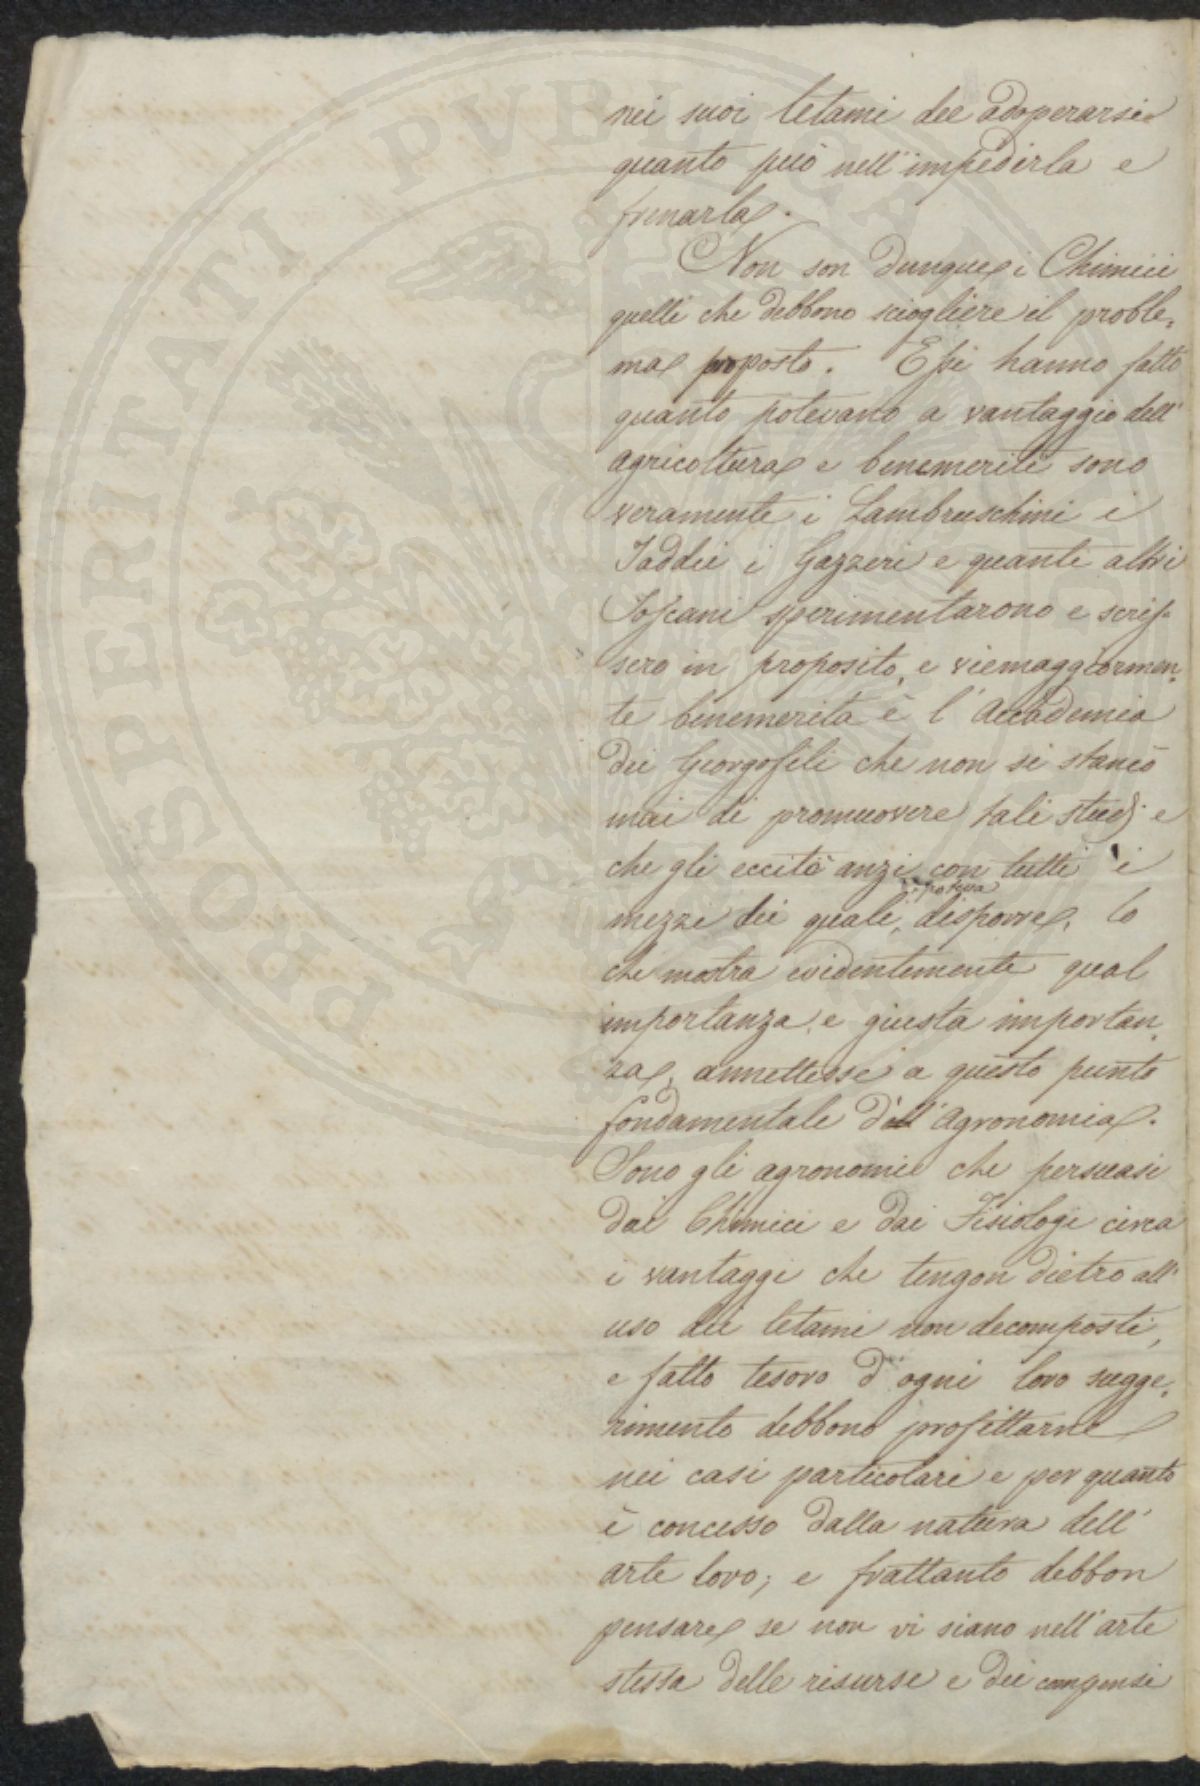 nei suoi letami dee adoperarsi
quanto può nell'impedirla e
frenarla.
Non son dunque i Chimici
quelli che debbono sciogliere il proble,
ma proposto. Essi hanno fatto
quanto potevano a vantaggio dell'
agricoltura e benemeriti sono
veramente i Lambruschini i
Taddei i Gazzeri e quanti altri
Toscani sperimentarono e scris=
sero in proposito, e viemaggiormen,
te benemerita è l'Accademia
dei Georgofili che non si stancò
mai di promuovere tali studj e
che gli eccitò anzi con tutti i
mezzi dei quali, poteva disporre, lo
che mostra evidentemente qual
importanza, e giusta importan,
za, annettesse a questo punto
fondamentale dell'Agronomia.
Sono gli agronomi che persuasi
dai Chimici e dai Fisiologi circa
i vantaggi che tengon dietro all'
uso dei letami non decomposti,
e fatto tesoro d'ogni loro sugge,
rimento debbono profittarne
nei casi particolari e per quanto
è concesso dalla natura dell'
arte loro; e frattanto debbon
pensare se non vi siano nell'arte
stessa delle risurse e dei compensi
PROSPERITATI PVBLICAE